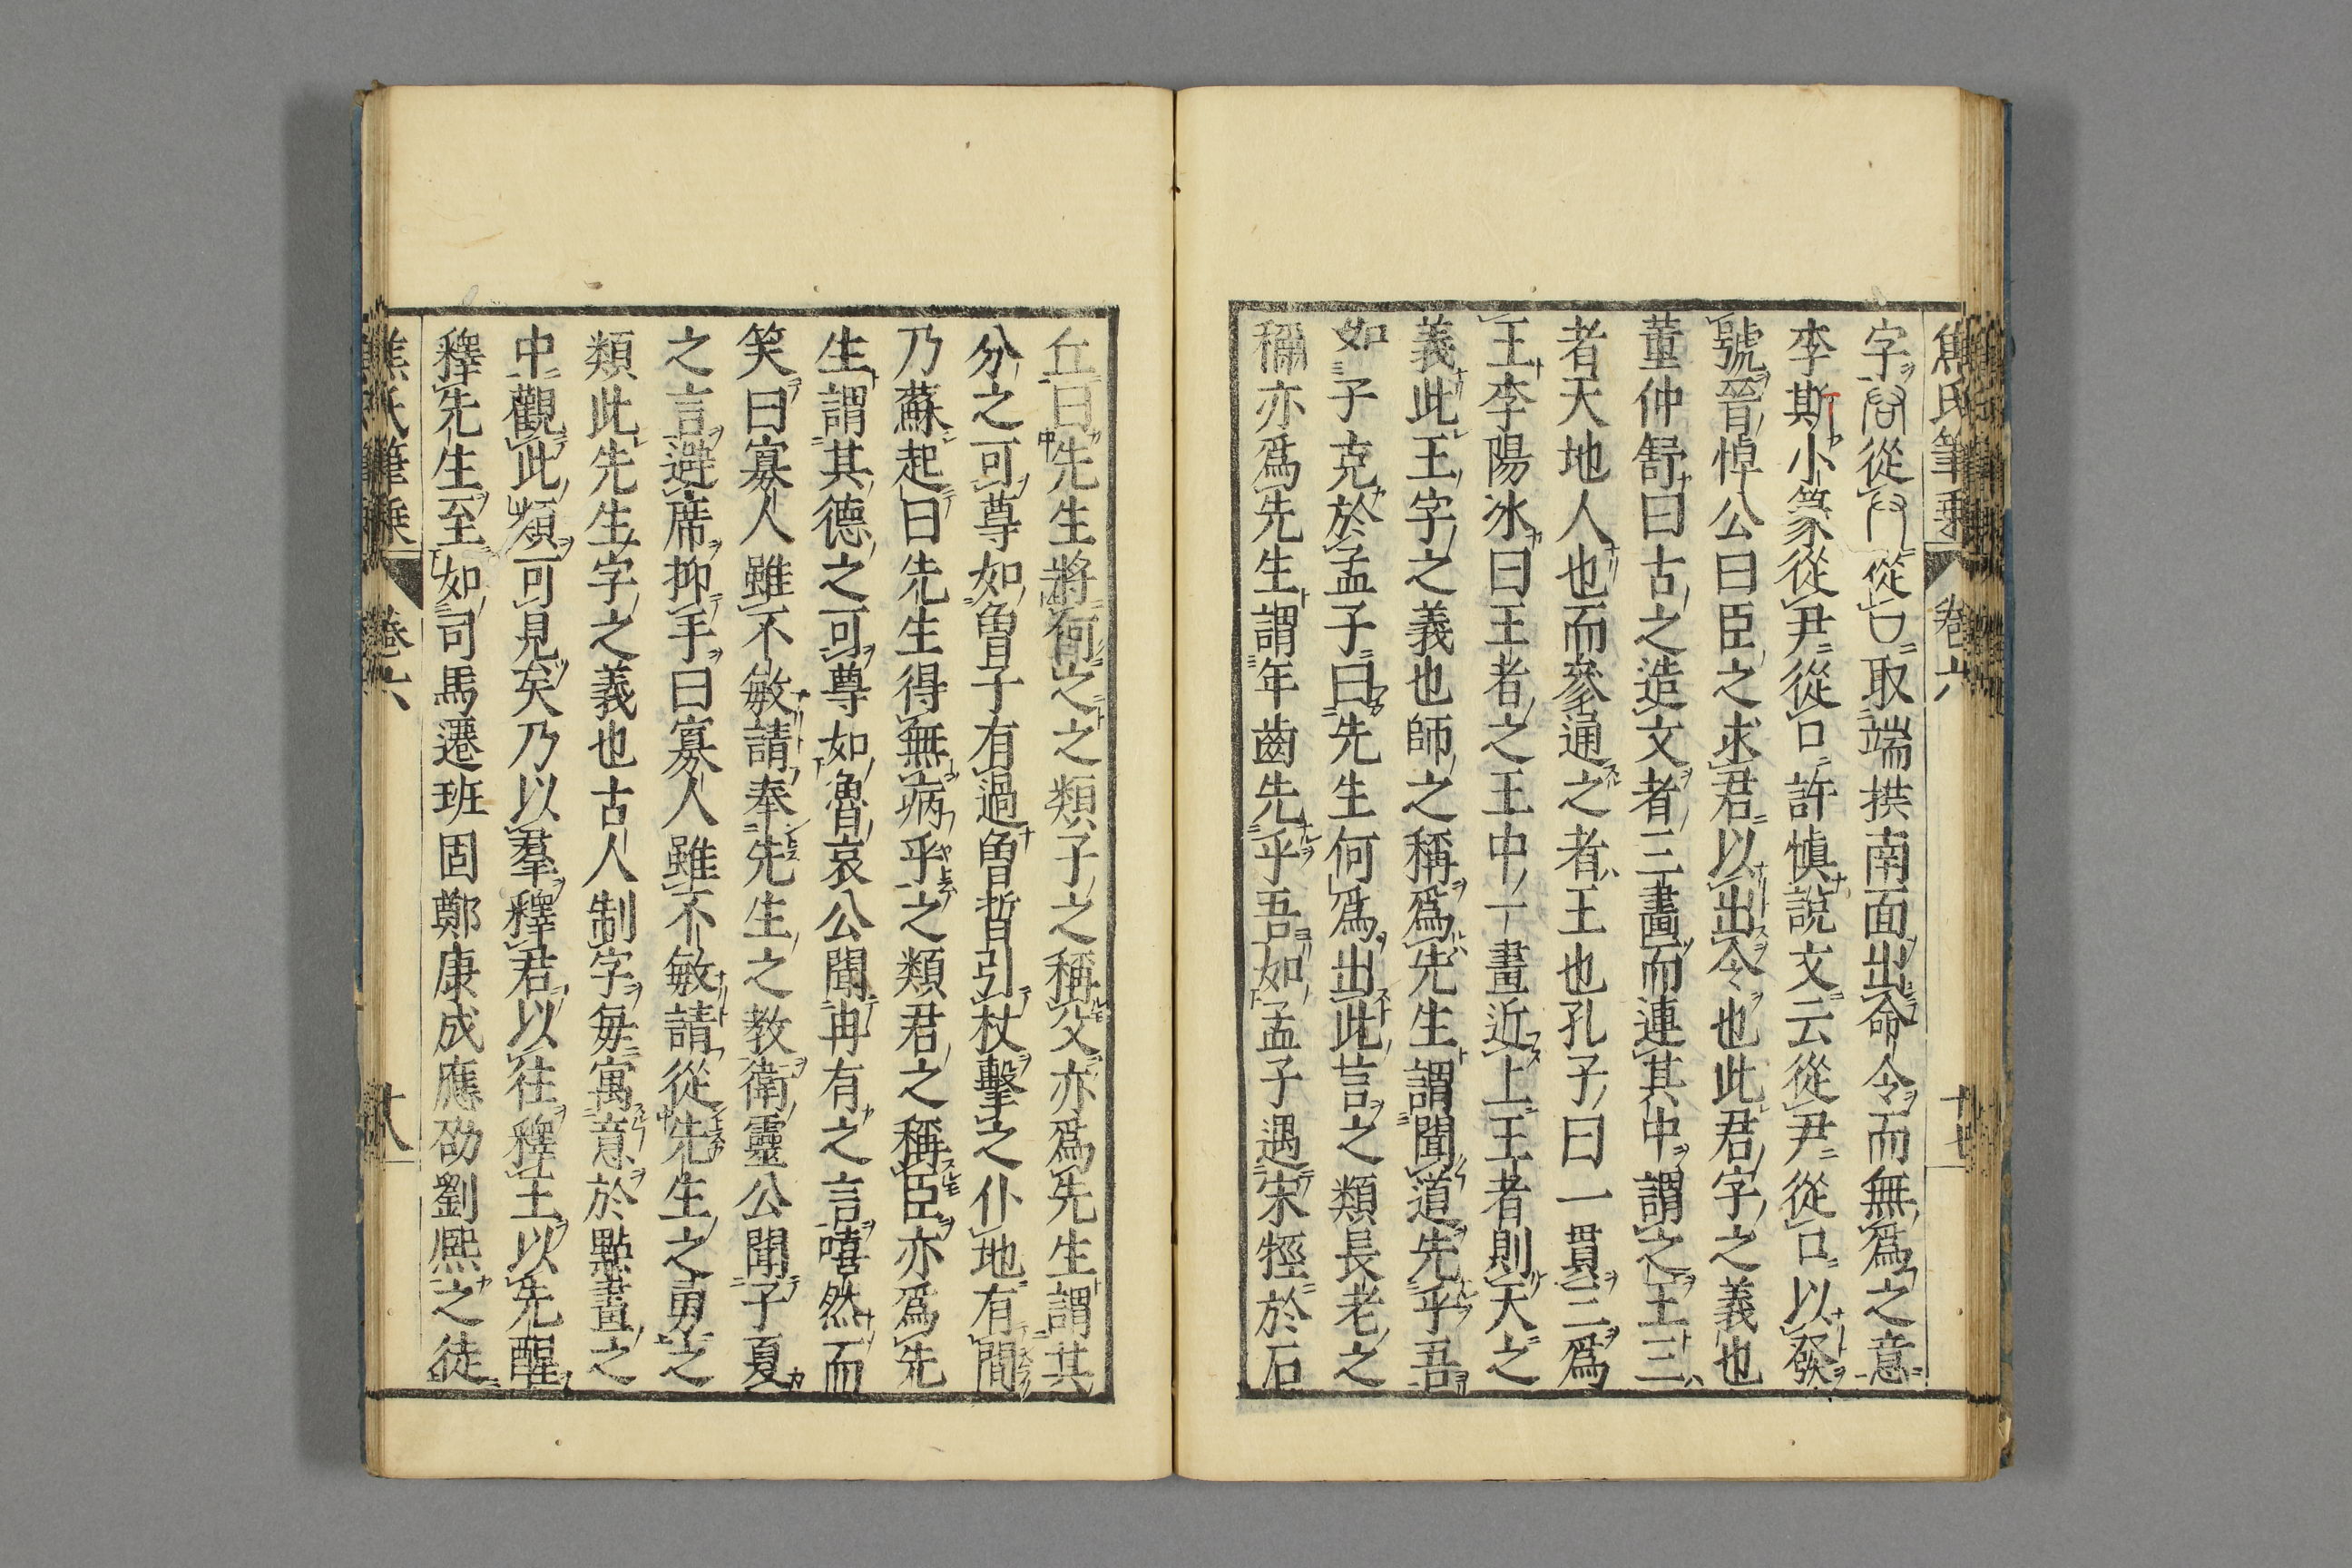 焦氏筆乗 卷六 十七
字從從口取端拱南面出命令而無爲之意
李斯小篆從尹從口許愼說文云從尹從口以發
號晉悼公曰臣之求君以出令也此君字之義也
董仲舒曰古之造文者三畫而連其中謂之王三
者天地人也而參通之者王也孔子曰一貫三爲
王李陽冰曰王者之王中一畫近上王者則天之
義此王字之義也師之稱爲先生謂聞道先乎吾
如子克於孟子曰先生何爲出此言之類長老之
稱亦爲先生謂年齒先乎吾如孟子遇宋牼於石
丘曰先生將何之之類子之稱父亦爲先生謂其
分之可尊如魯子有過魯晳引杖擊之仆地有間
乃蘇起曰先生得無病乎之類君之稱臣亦爲先
生謂其德之可尊如魯哀公聞冉有之言嘻然而
笑曰寡人雖不敏請奉先生之教衛靈公聞子夏
之言避席抑手曰寡人雖不敏請從先生之勇之
類此先生字之義也古人制字毎寓意於點畫之
中觀此類可見矣乃以羣釋君以往釋王以先醒
釋先生至如司馬遷班固鄭康成應劭劉熙之徒
焦氏筆乗 卷六 十八